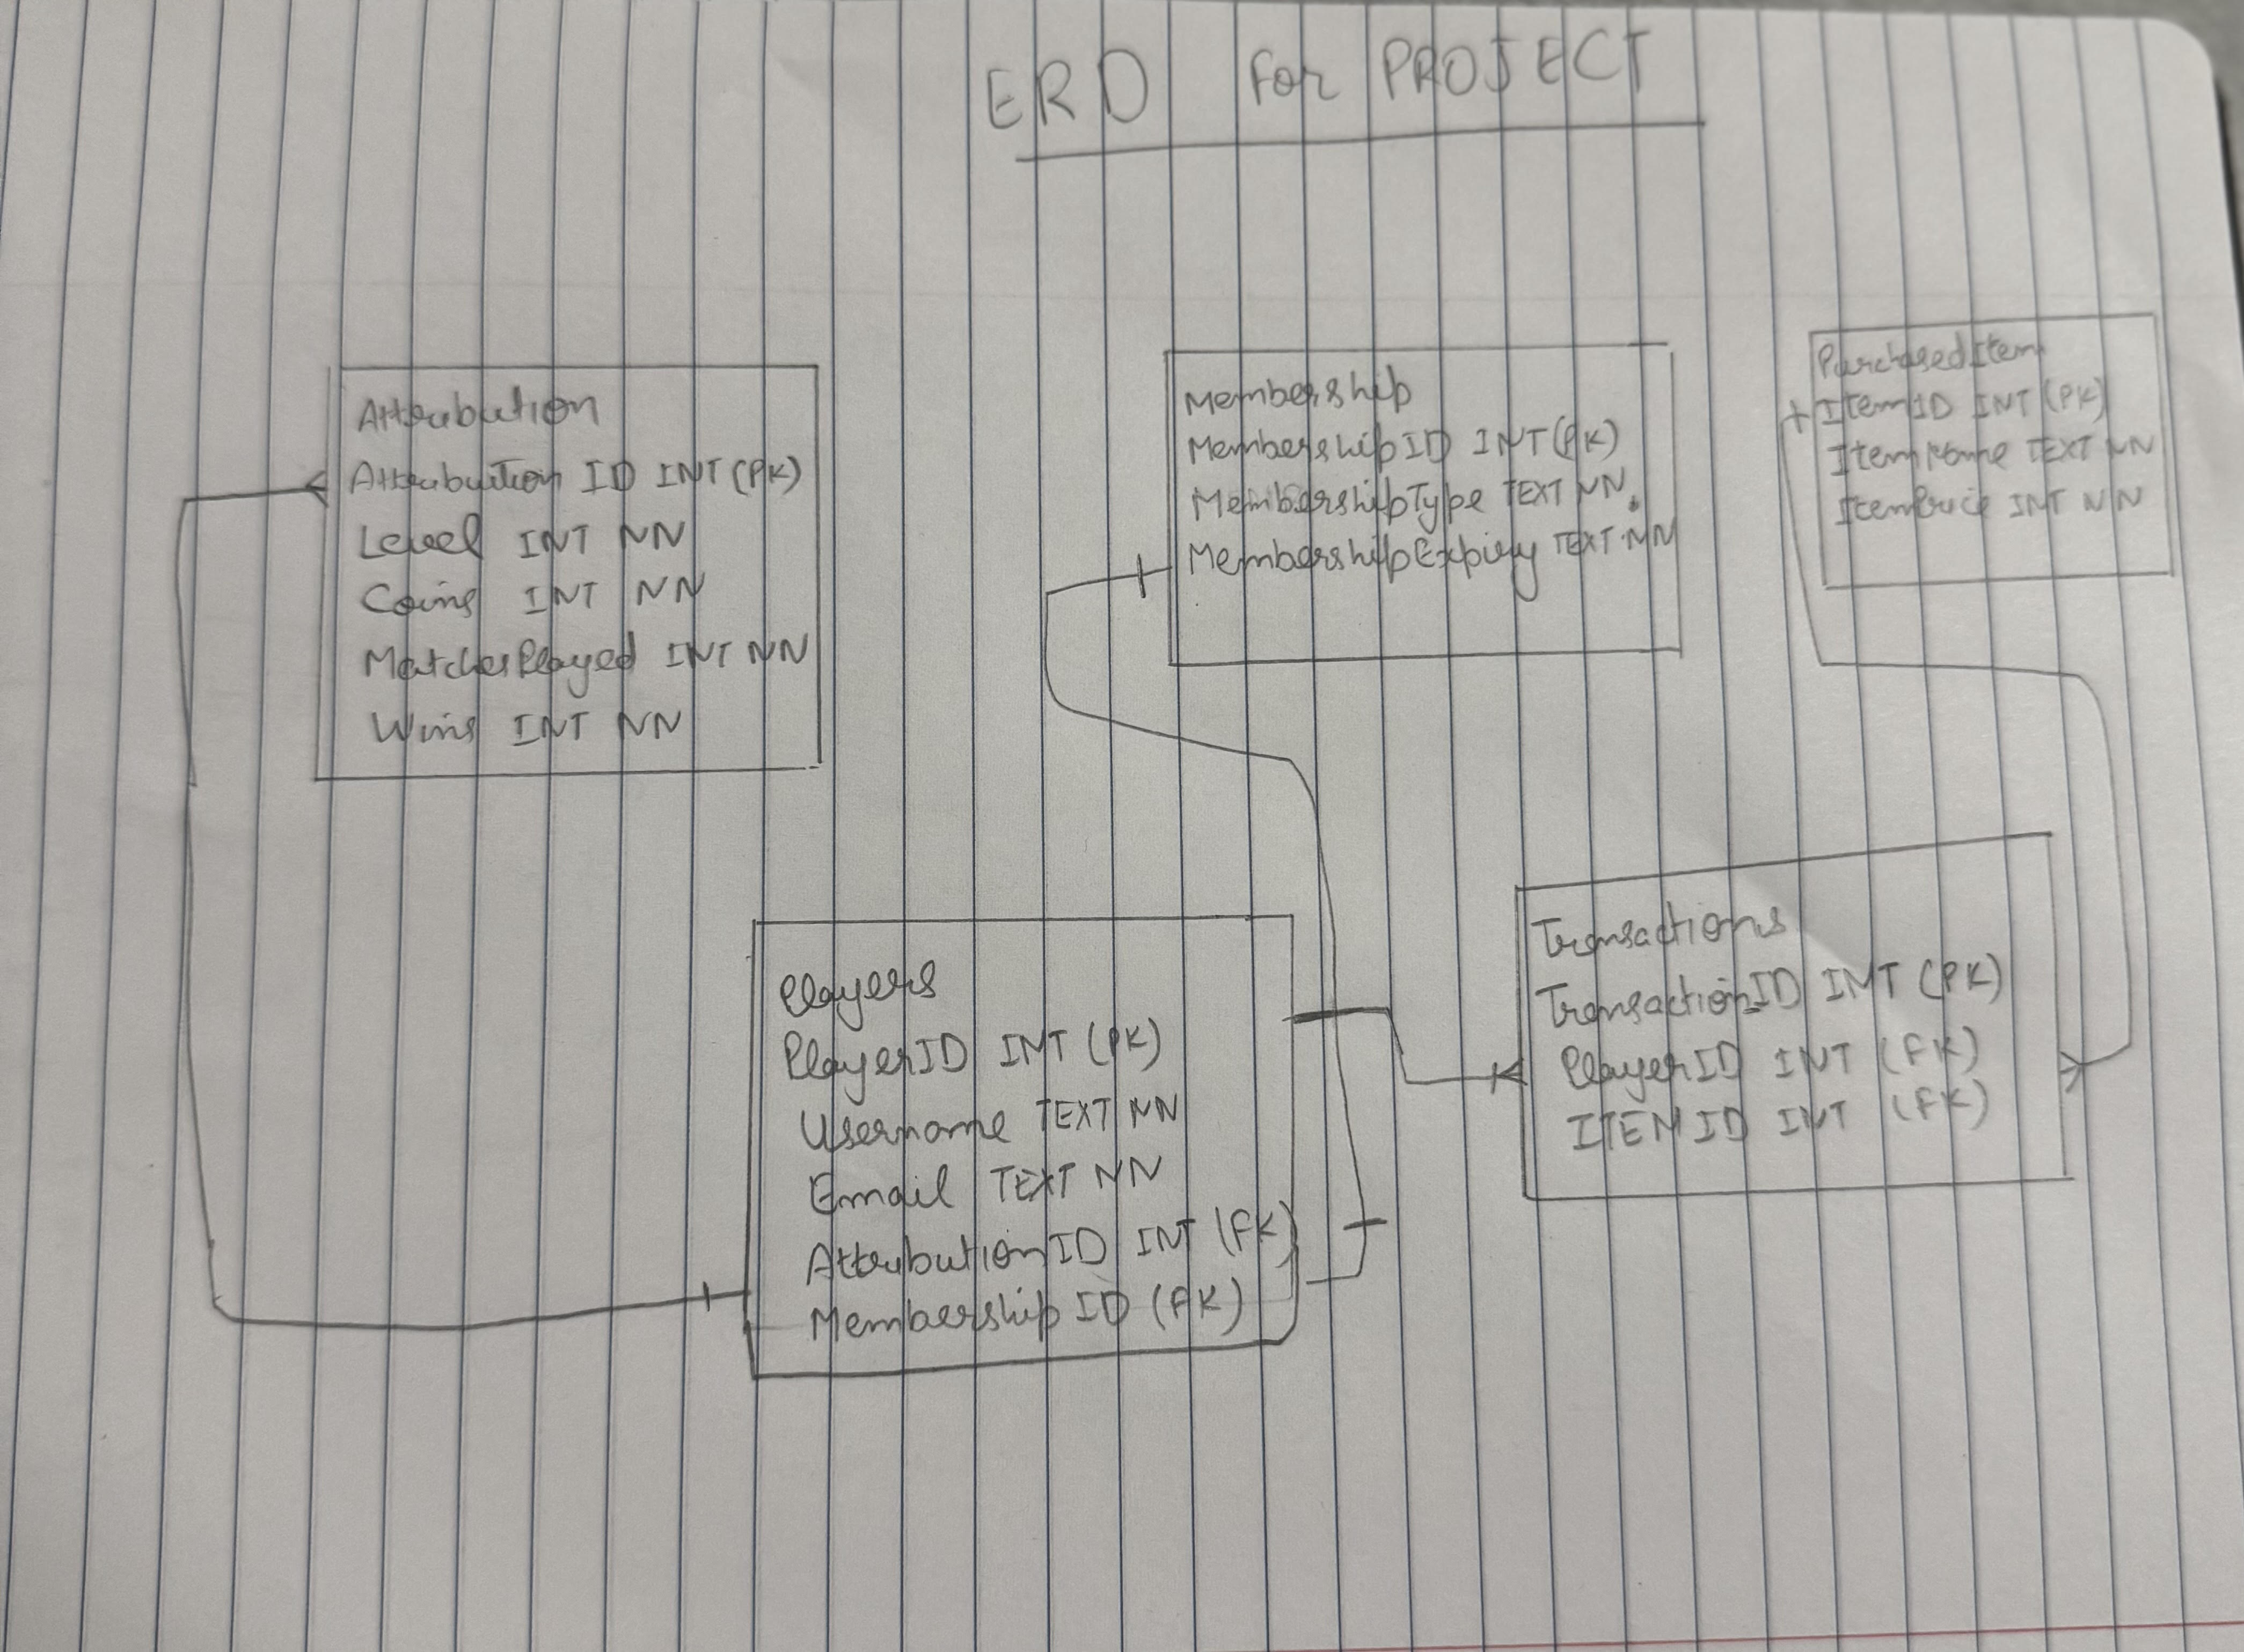 ERD For PROJECT
Attribution
Attribution ID INT (PK)
Level INT NN
Coins INT NN
MatchesPlayed INT NN
Wins INT NN
Membership
MembershipID INT (PK)
MembershipType TEXT NN.
MembershipExpiry TEXT NN
PurchasedItem
ItemID INT (PK)
ItemName TEXT NN
ItemPrice INT NN
Players
PlayerID INT (PK)
Username TEXT NN
Email TEXT NN
AttributionID INT (FK)
Membership ID (FK)
Transactions
TransactionID INT (PK)
PlayerID INT (FK)
ITEM ID INT (FK)